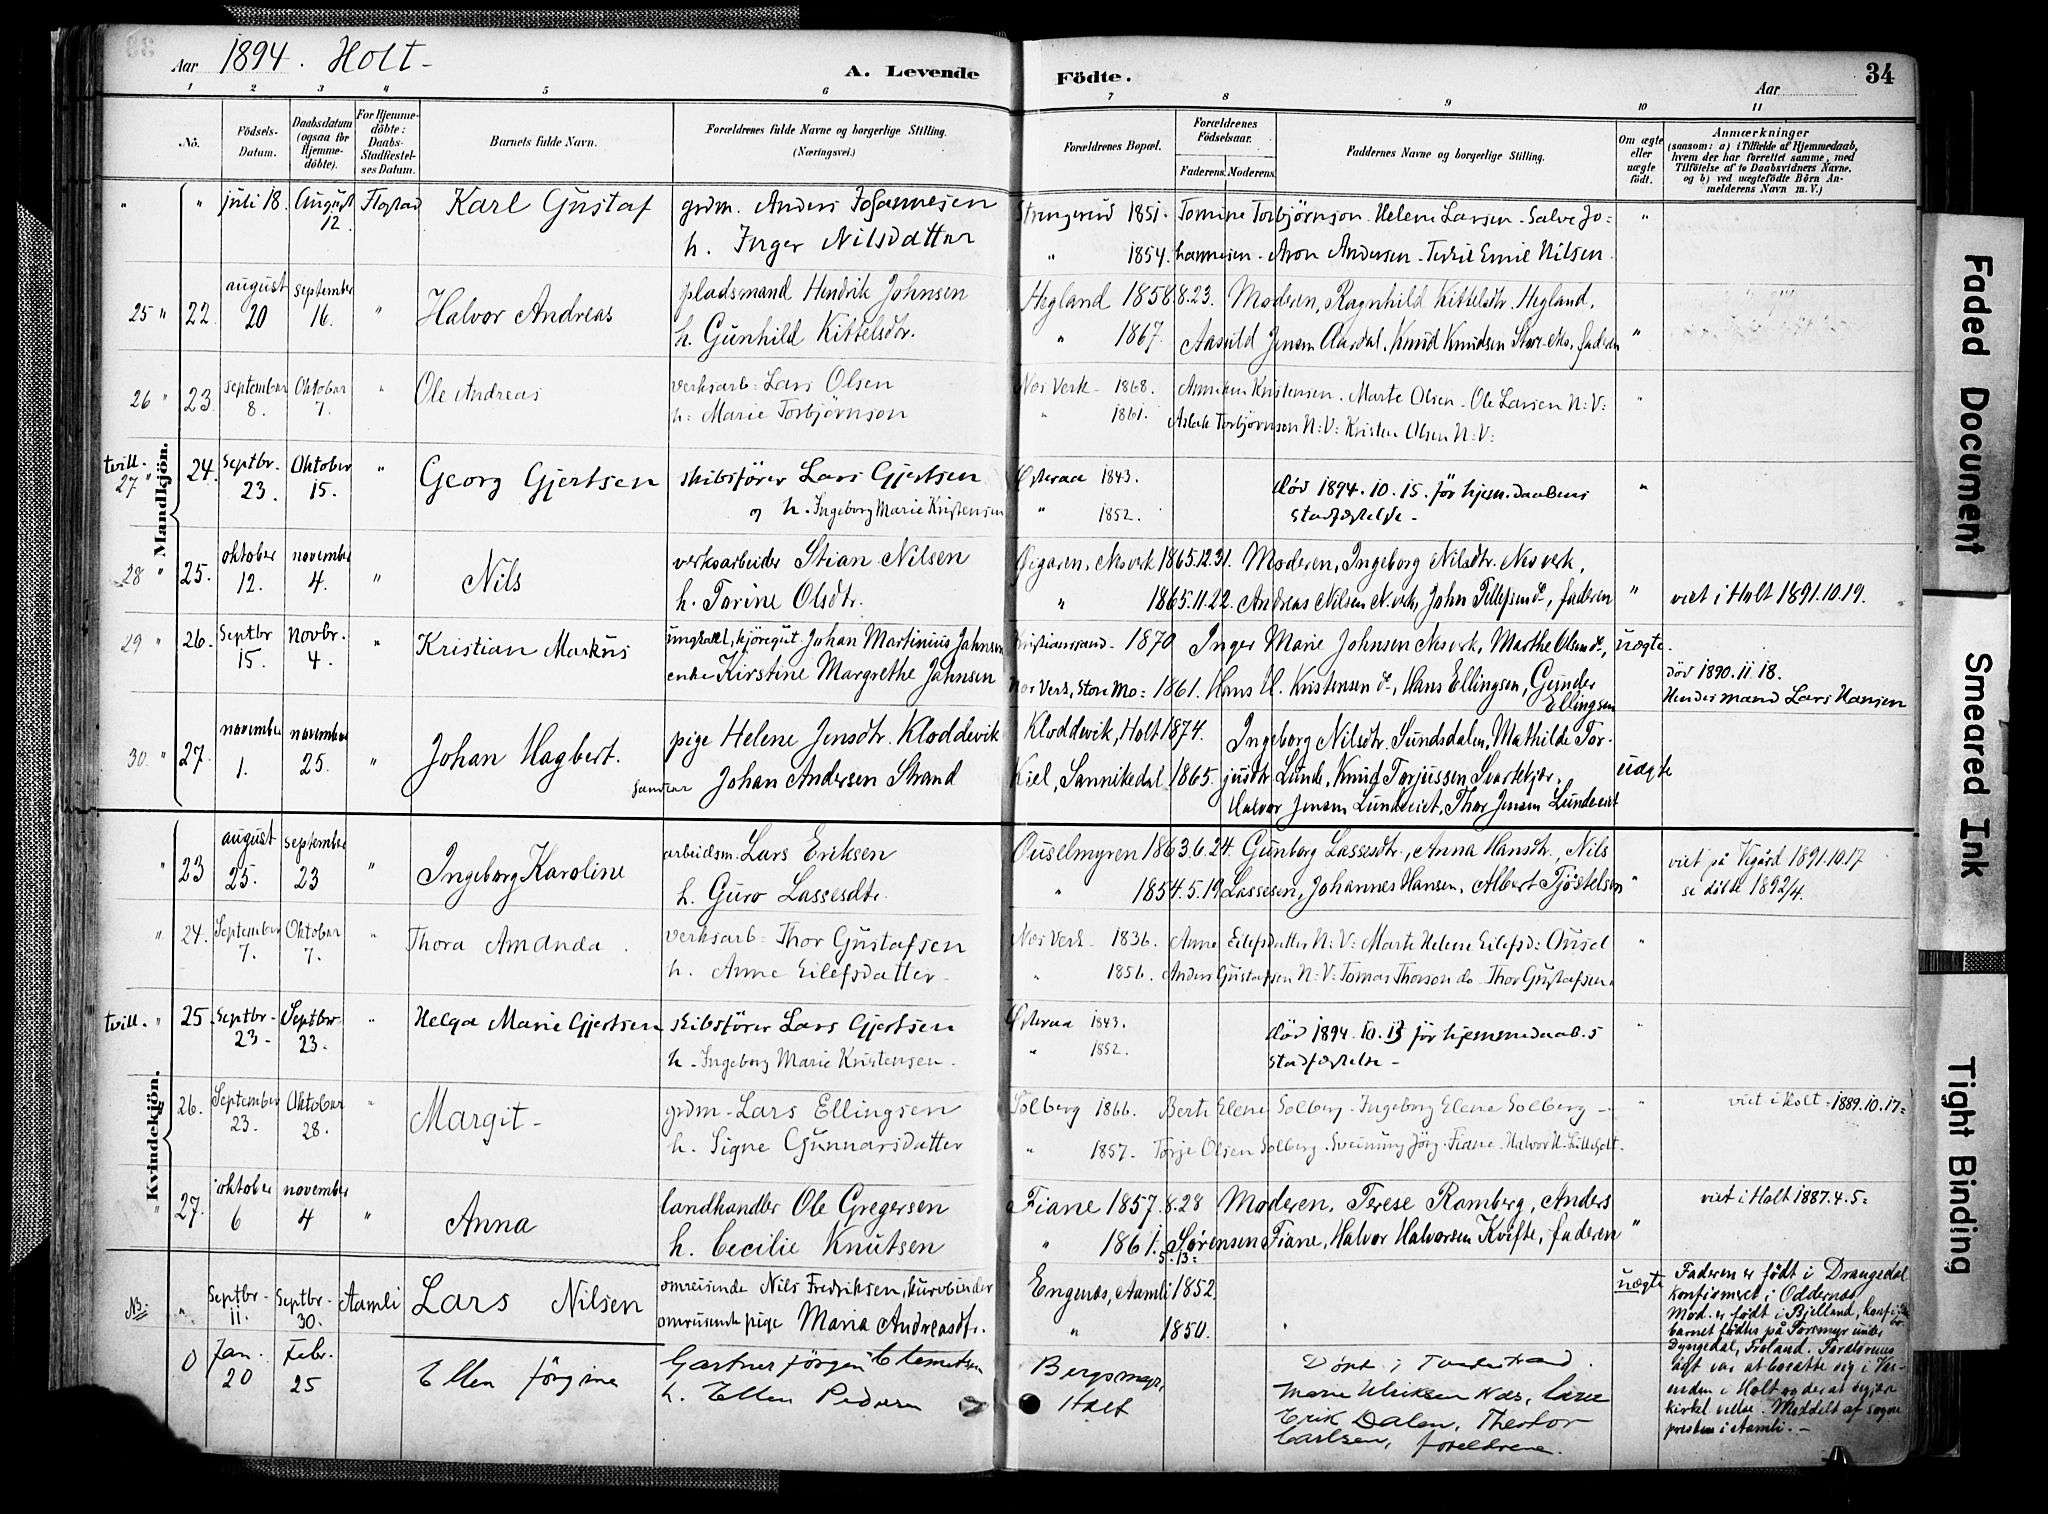 Aar 1894. Holt - A. Levende Födte. Aar 34
1 2 3 4 5 6 7 8 9 10 11
No. Födsels-Datum. Daabsdatum (ogsaa for Hjemme-döbte). For Hjemme-döbte: Daabs-Stadfæstel-ses Datum. Barnets fulde Navn. Forældrenes fulde Navne og borgerlige Stilling. (Næringsvei.) Forældrenes Bopæl. Forældrenes Födselsaar. Faderens. Moderens. Faddernes Navne og borgerlige Stilling. Om ægte eller uægte födt. Anmærkninger
(saasom: a) i Tilfælde af Hjemmedaab, hvem der har forrettet samme, med Tilföielse af to Daabsvidners Navne, og b) ved uægtefödte Börn An-melderens Navn m. V.)
Mandkjön.
" " juli 18. August 12. Flostad Karl Gustaf grdm. Anders Johannesen 1851. Tomine Torbjørnson. Helene Larsen. Salve Jo= "
h. Inger Nilsdatter " 1854. hannesen. Aron Andersen. Terkil Emil Nilsen.
25 " 22. august 20 september 16. " Halvor Andreas pladsmand Hendrik Johnsen Hegland 1858.8.23. Moderen, Ragnhild Kittelsdtr. Hegland,
h. Gunhild Kittelsdtr. " 1867. Aasuld Jensen Aardal, Knud Knudsen, faderen "
26 " 23. september 8. Oktober 7. " Ole Andreas verksarb: Lars Olsen Nes Verk - 1868. Kristensen. Marte Olsen - Ole Larsen N: V: "
h: Marie Torbjørnson " 1861. Aslak Torbjørnson N: V: Kristen Olsen N: V:
tvill. 27 " 24. Septbr. 23. Oktober 15. " Georg Gjertsen skibsfører Lars Gjertsen Østeraa 1843. død 1894. 10. 15. før hjem.daabens "
og h. Ingeborg Marie Kristensen " 1852. stadfæstelse -
28 " 25. oktober 12. november 4. " Nils verksarbeider Stian Nilsen Øigaren, Nesverk 1865.12.31. Moderen, Ingeborg Nilsdtr. Nesverk,
h. Torine Olsdtr. " 1865.11.22. Andreas Nilsen N.verk, John Tellefsen do, faderen " viet i Holt 1891.10.19.
29 " 26. Septbr 15. novbr. 4. " Kristian Markus ungkarl, kjøregut Johan Martinius Jahnsen Kristianssand - 1870 Inger Marie Johnsen Nesverk, Marthe Olsen do, uægte.
enke Kirstine Margrethe Jahnsen Nes Verk, Store Mo: 1861. Hans H. Kristensen do, Hans Ellingsen, Gunder Ellingsen død 1890. 11. 18. Hendes mand Lars Hansen
30. " 27. november 1. november 25. " Johan Hagbert. pige Helene Jensdtr. Kloddevik Kloddevik, Holt 1874. Ingeborg Nilsdtr. Sundsdalen, Mathilde Tor-
Johan Andersen Strand Kiel, Sannikedal 1865. jusdtr Lunde, Knud Torjussen Svartekjær, uægte
Halvor Jensen Lundeveiet, Thor Jensen Lundeveiet
Kvindekjön.
" 23 august 25. september 23 " Ingeborg Karoline arbeidsm. Lars Eriksen Ouselmyren 1863.6.24. Gunborg Lassesdtr., Anna Hansdtr., Nils viet på Vegård 1891.10.17
h. Guro Lassesdtr. " 1854.5.19 Lassesen, Johannes Hansen, Albert Tjøstelsen " se døbte 1892/4.
" 24. September 7. Oktober 7. " Thora Amanda. verksarb: Thor Gustafsen Nes Verk - 1836. Anne Eilefsdatter N: V: Marte Helene Eilefsd: Ousel "
h. Anne Eilefsdatter - " 1856. Anders Gustafsen N: V: Tomas Thorson do - Thor Gustafsen.
tvill. " 25. Septbr - 23. Septbr 23. " Helga Marie Gjertsen skibsfører Lars Gjertsen Østeraa 1843. død 1894. 10. 13 før hjemmedaab.s "
h. Ingeborg Marie Kristensen. " 1852. stadfæstelse -
26. September 23. Oktober 28. " Margit - grdm - Lars Ellingsen Solberg 1866. Berte Elene Solberg - Ingeborg Elene Solberg - " viet i Holt - 1889. 10. 17=
h. Signe Gunnarsdatter " 1857. Torje Olsen Solberg. Sveinung Jörg. Fiane. Halvor H. Lilleholt.
" 27. oktober 6 november 4 " Anna landhandler Ole Gregersen Fiane 1857. 8.28 Moderen, Terese Ramberg, Anders viet i Holt 1887.4.5=
h. Cecilie Knutsen " 1861. 5.13: Sørensen Fiane, Halvor Halvorsen Kvifte, faderen "
NB: " Septbr - 11. Septbr - 30. Aamli Lars Nilsen omreisende Nils Fredriksen, kurvbinder Engenæs, Aamli 1852. uægte Faderen er født i Drangedal
omreisende pige Maria Andreasdtr. " 1850. " konfirmeret i Oddernæs
Mod. er født i Bjelland, konf. i
barnet fødtes på Forsmyr under
Dyngedal, Froland. Forældrenes
agt var at bosætte sig i Ves-
enden i Holt og der at begjære
kirkl. vielse. Meddelt af sogne
presten i Aamli. -
0 Jan. 20 Febr. 25 Ellen Jörgine Gartner Jörgen Clemetsen Bergsmyr, Døpt i Tvedestrand.
h. Ellen Pedersen Holt Marie Ulriksen Næs, Lane
Erik Dalen, Theodor
Carlsen, foreldrene.
Faded Document
Smeared Ink
Tight Binding